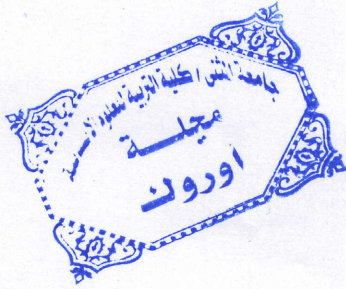 جامعة المثنى / كلية التربية للعلوم الانسانية
مجلـــة
اوروك